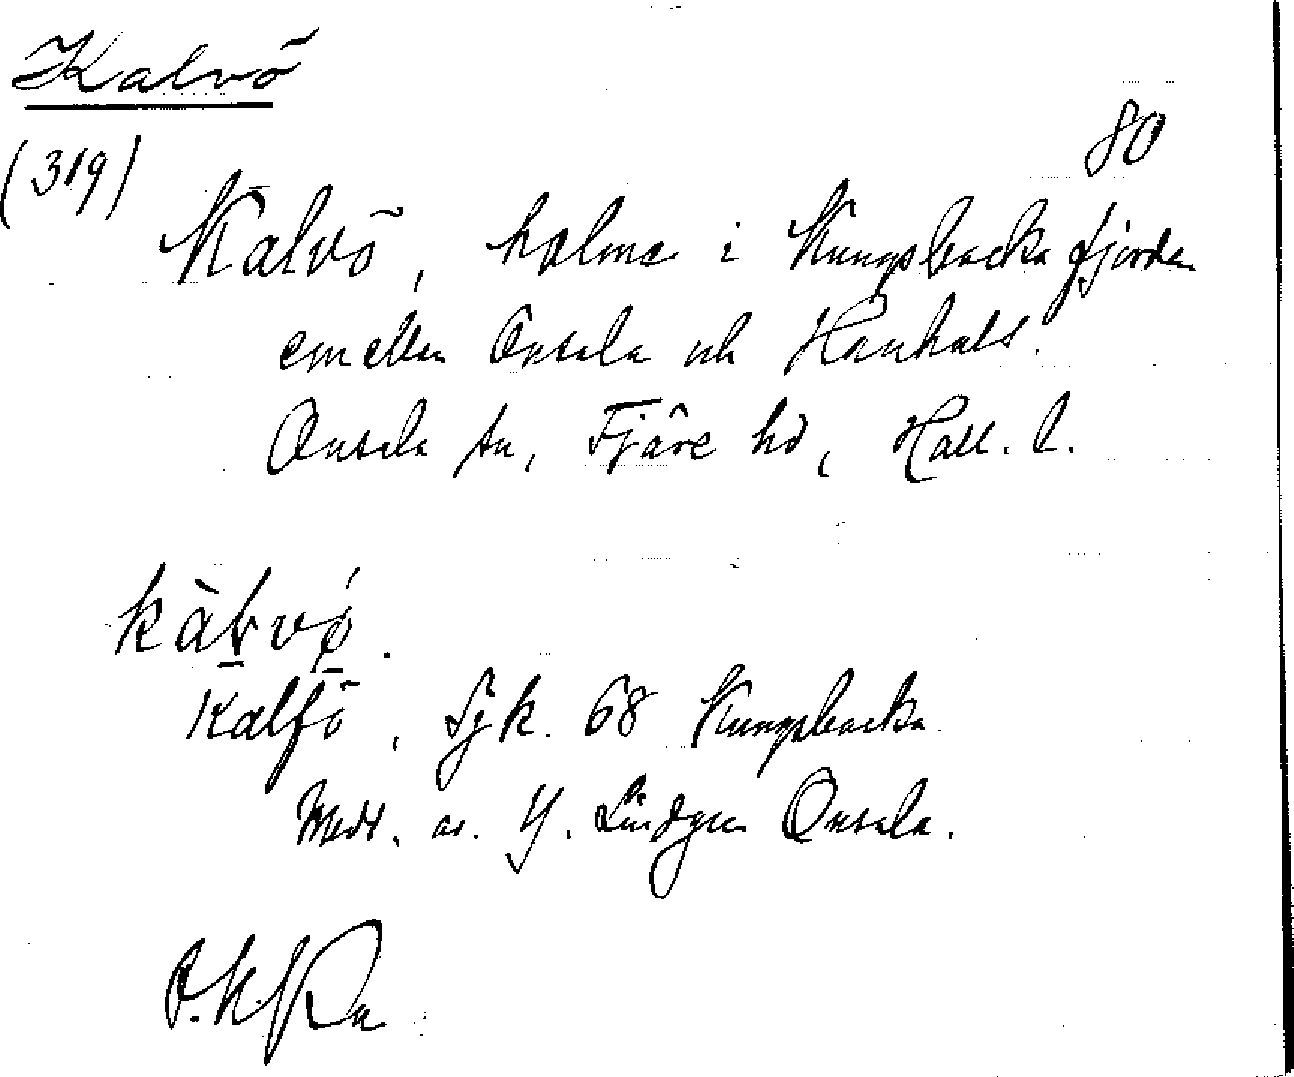 Kalvö
80
(319)
Kalvö, holme i Kungsbackafjorden
emellan Onsala och Hanhals.
Onsala sn, Fjäre hd, Hall. l.
kàlvø.
Kalfö, Sjk. 68 Kungsbacka
Medd. av Y. Lindgren Onsala.